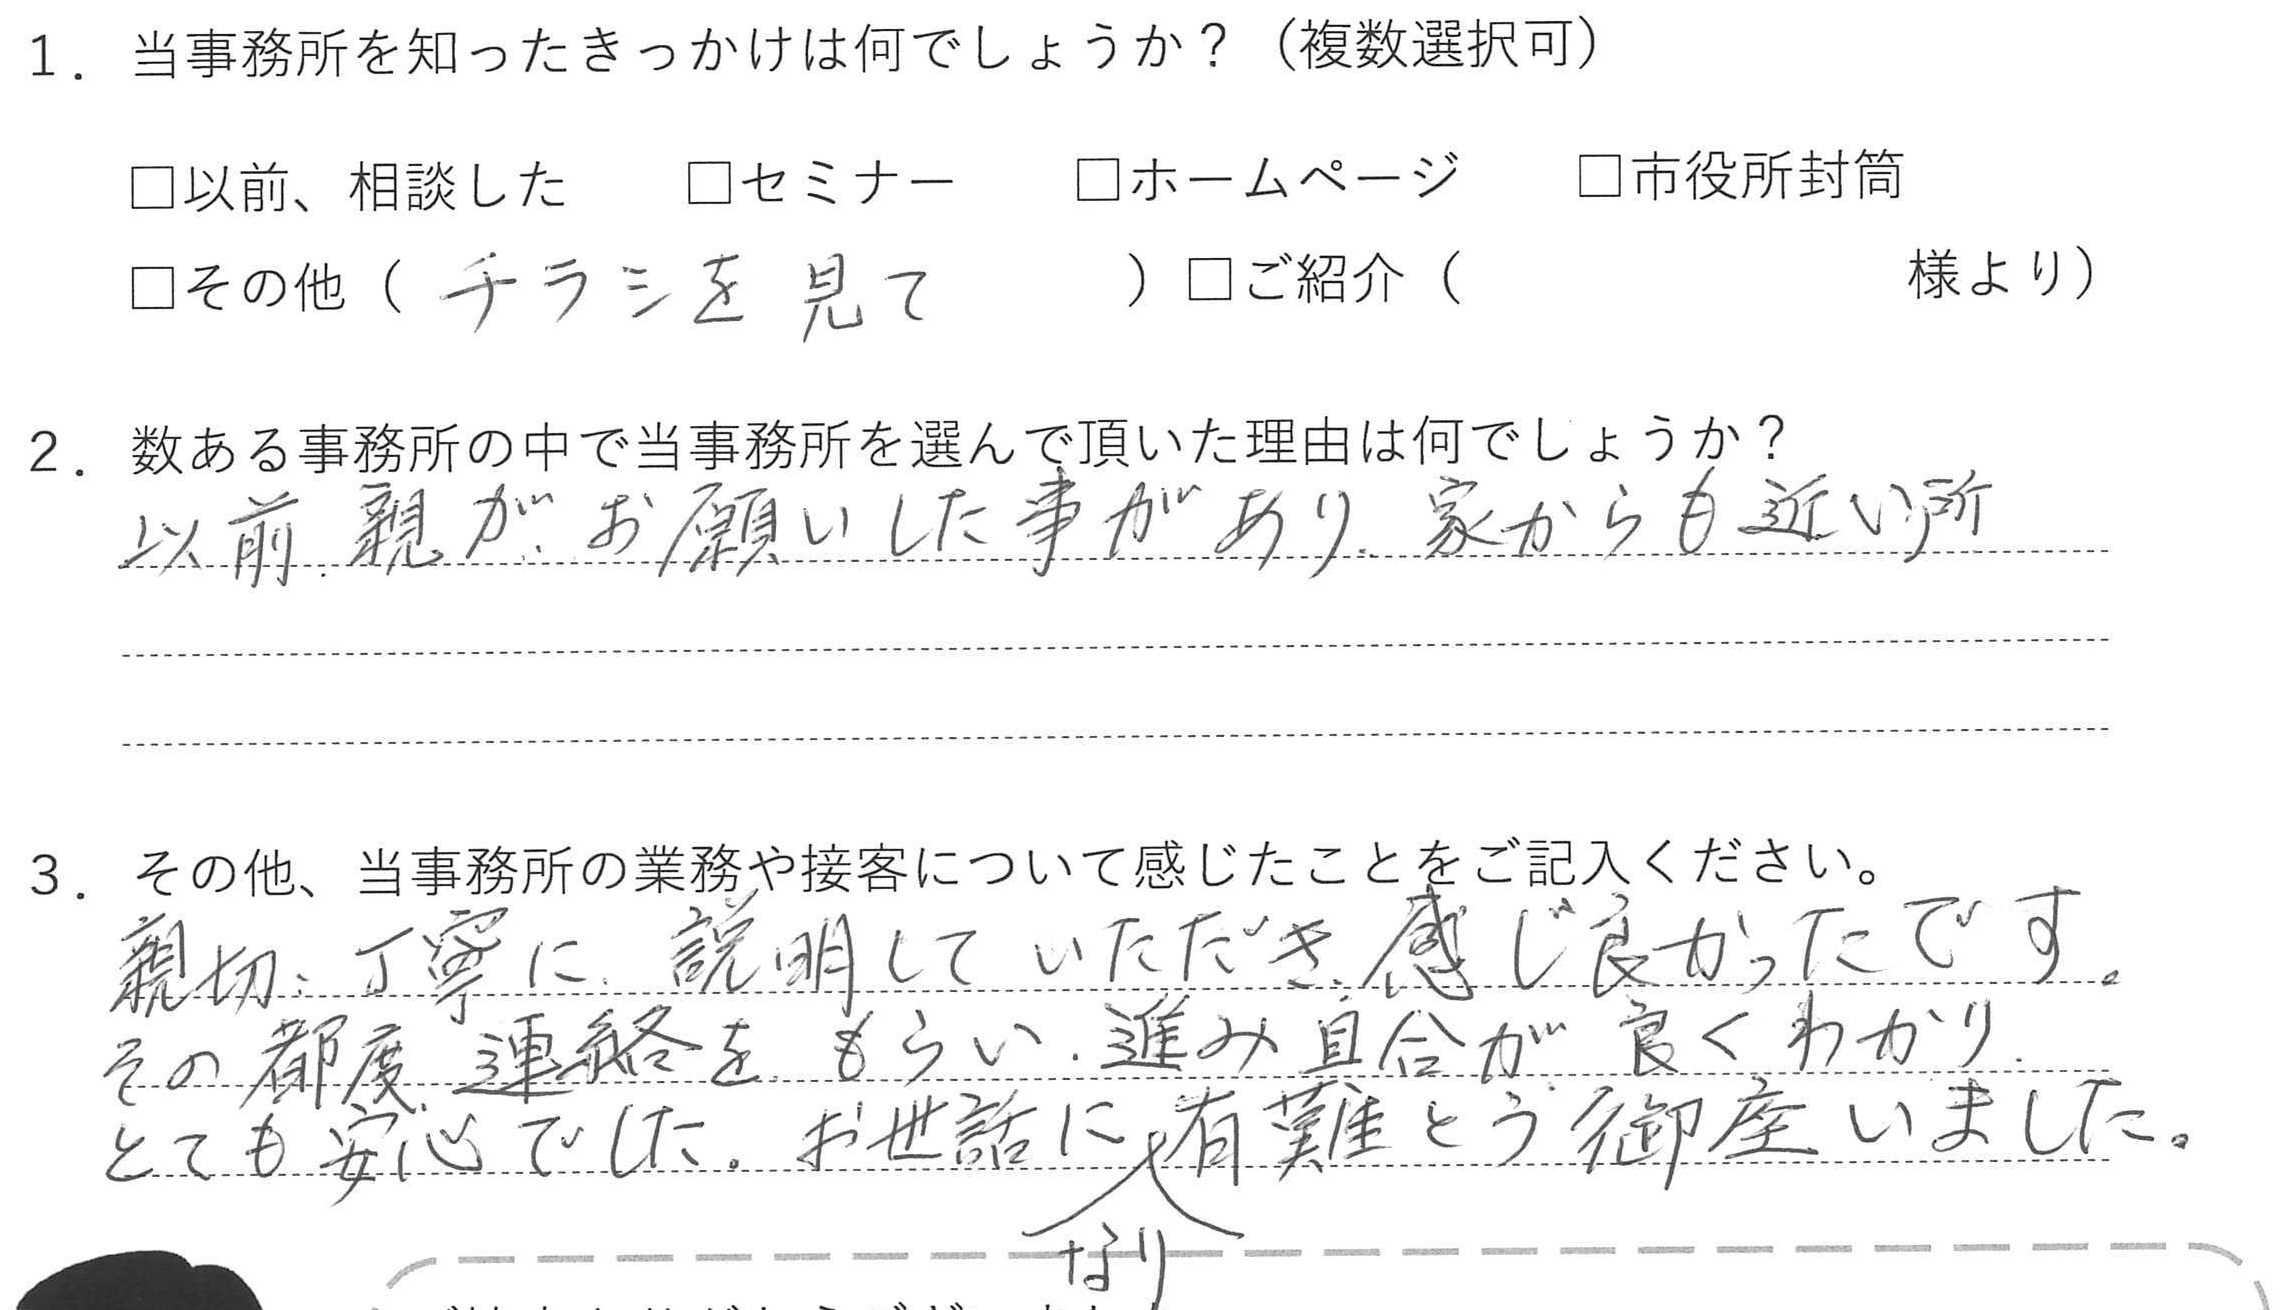 1．当事務所を知ったきっかけは何でしょうか？（複数選択可）
□以前、相談した　□セミナー　□ホームページ　□市役所封筒
□その他（チラシを見て）□ご紹介（　　　様より）
2．数ある事務所の中で当事務所を選んで頂いた理由は何でしょうか？
以前、親が、お願いした事があり、家からも近い所
3．その他、当事務所の業務や接客について感じたことをご記入ください。
親切、丁寧に、説明していただき、感じ良かったです。
その都度、連絡をもらい、進み具合が良くわかり、
とても安心でした。お世話になり有難とう御座いました。